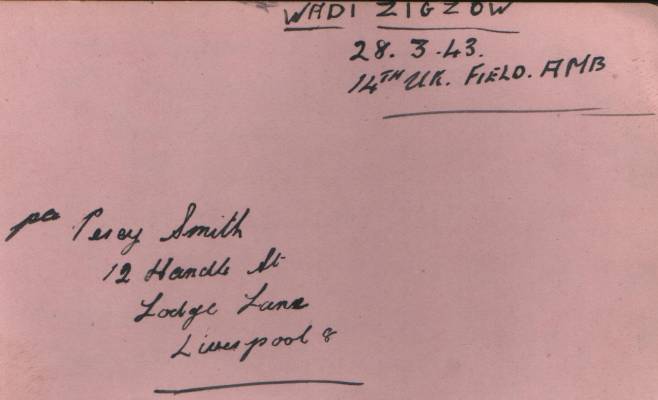 WADI ZIGZOW
28. 3.43.
14TH UK. FIELD. AMB
Percy Smith
12 Handle St
Lodge Lane
Liverpool 8